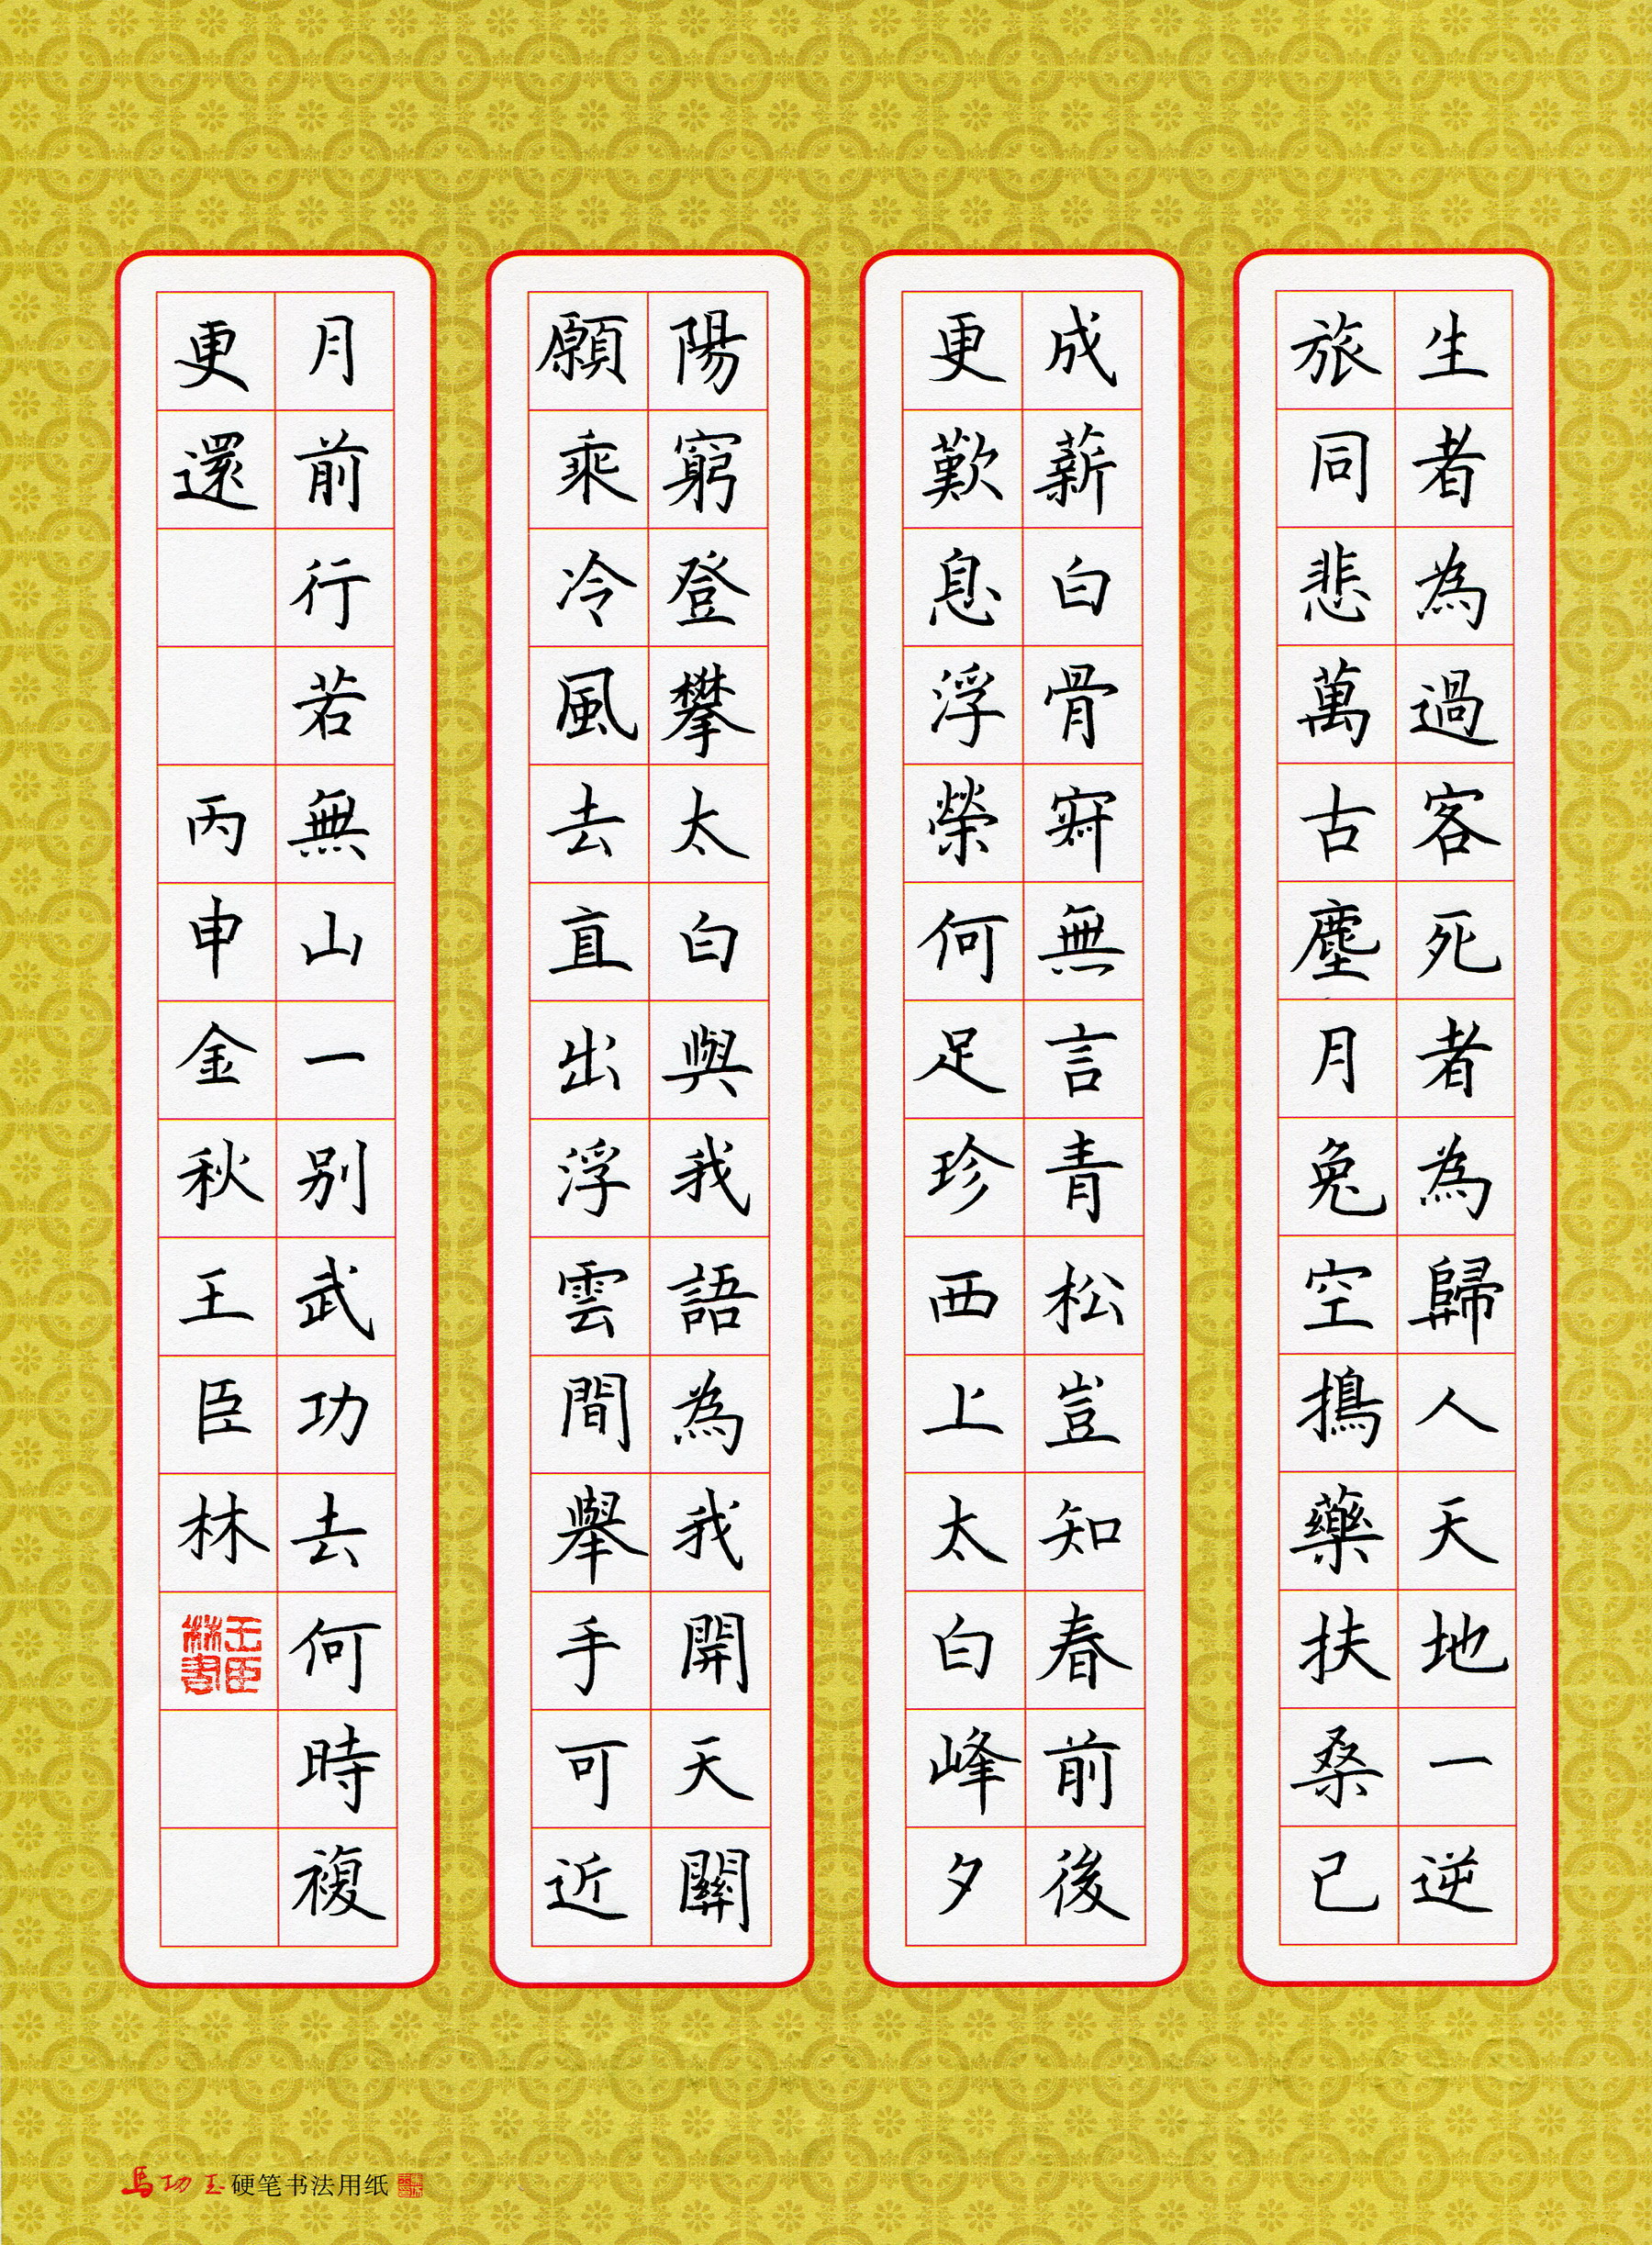 生者為過客死者為歸人天地一逆
旅同悲萬古塵月兔空搗藥扶桑已
成薪白骨寂無言青松豈知春前後
更歎息浮榮何足珍西上太白峰夕
陽窮登攀太白與我語為我開天關
願乘冷風去直出浮雲間舉手可近
月前行若無山一别武功去何時複
更還
丙申金秋王臣林
王臣林書
馬功玉硬笔书法用纸